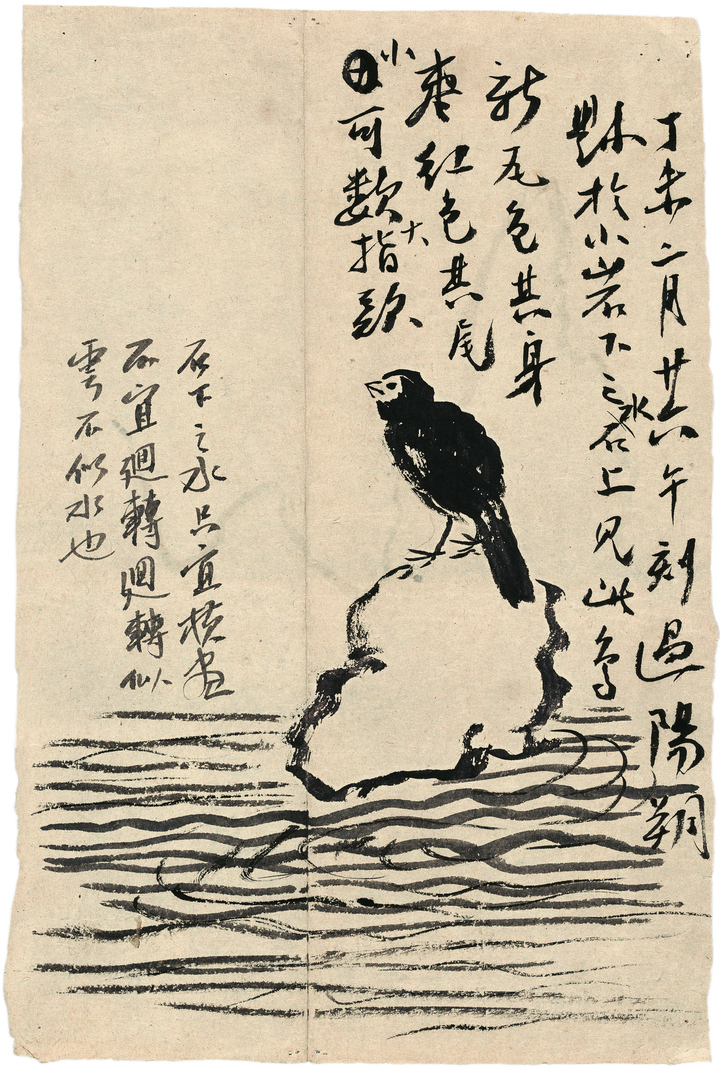 丁未二月廿六午刻過陽朔
縣於小岩下之水石上見此鳥
新瓦色其身
棗紅色其尾大
小可數指
石下之水只宜橫畫
不宜迴轉迴轉似
雲不似水也